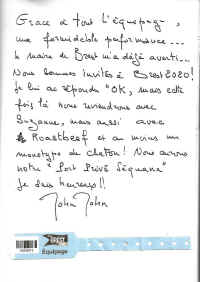 Grace à tout l'équipage,
une formidable performance...
Le maire de Brest m'a déjà averti...
Nous sommes invités à Brest 2020!
Je lui ai répondu "OK, mais cette
fois là nous reviendrons avec
Suzanne, mais aussi avec
Roastbeef et au moins un
monotype de Chatou! Nous aurons
notre "Port Privé Séquana"
Je suis heureux!!
John John
Équipage